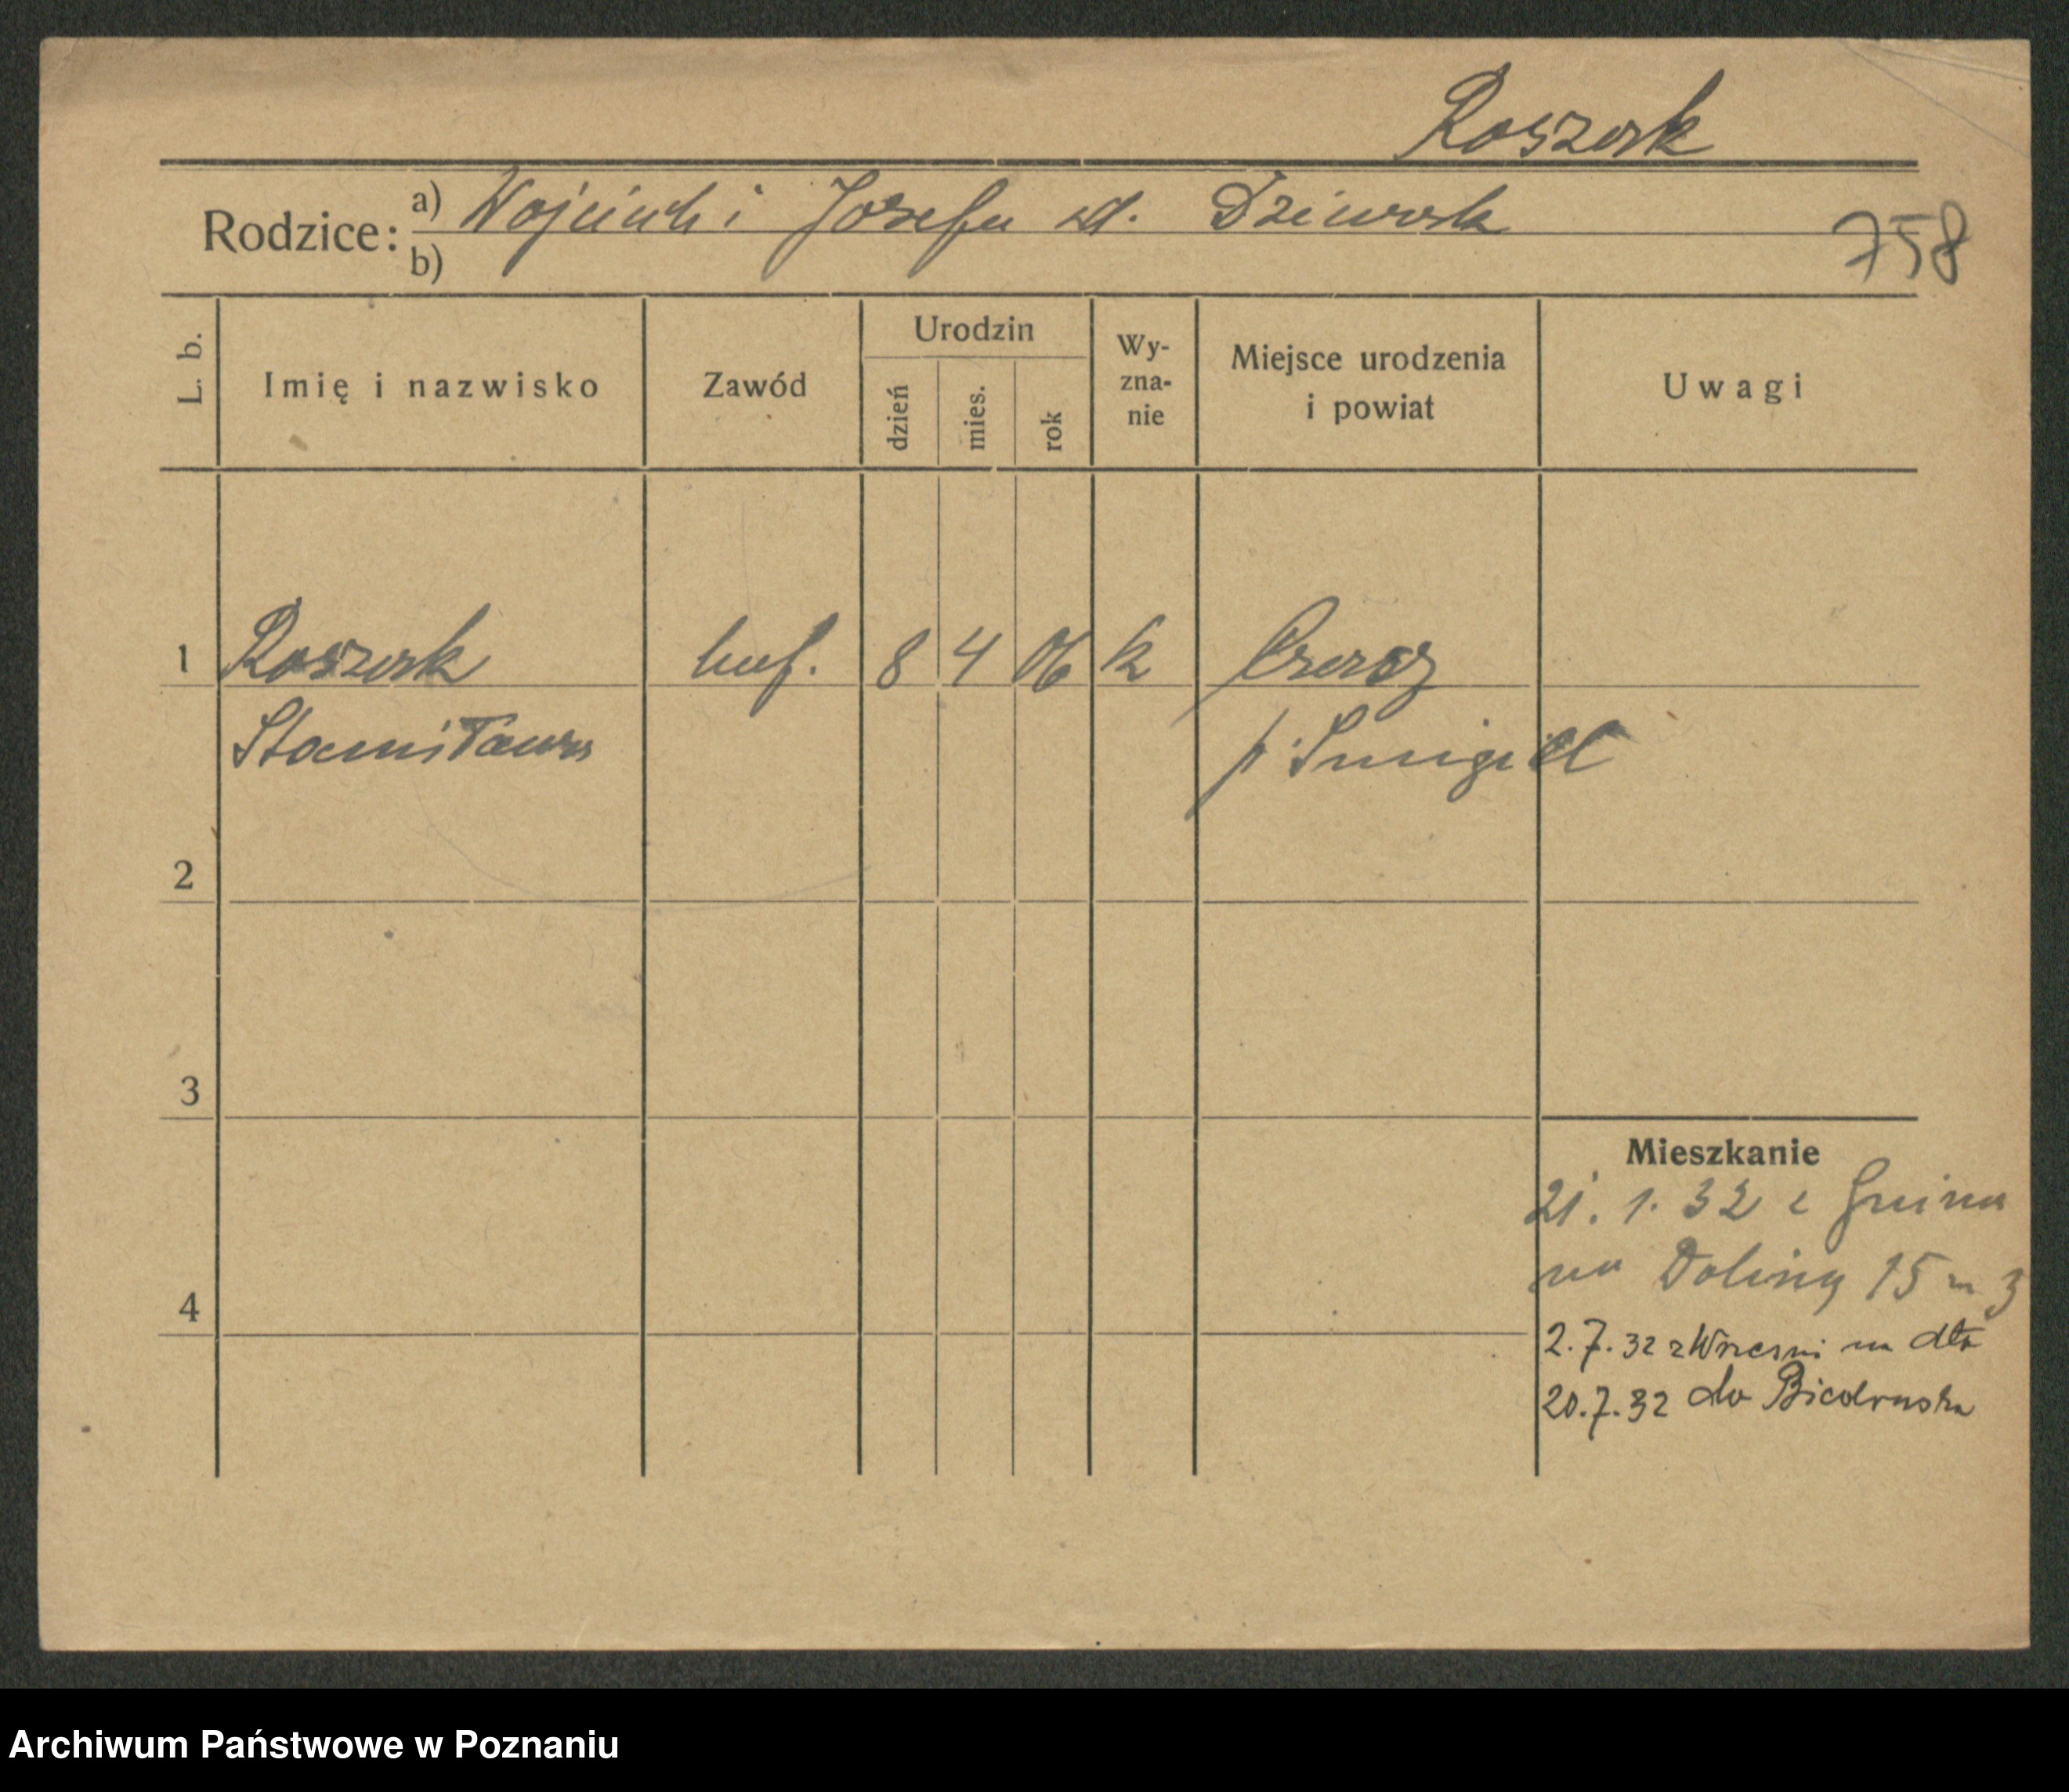 Roszak
Rodzice: a) Wojciech i Józefa zd. Dziewok
b)
758
L. b.
Imię i nazwisko
Zawód
Urodzin
dzień
mies.
rok
Wy-
zna-
nie
Miejsce urodzenia
i powiat
Uwagi
1 Roszak buf. 8 4 06 k
Stanisława
p. Śmigiel
2
3
4
Mieszkanie
21. 1. 32 z
na Dolina 15 m 3
2.7.32 z Wrześni na
20.7.32 do Biedruska
Archiwum Państwowe w Poznaniu